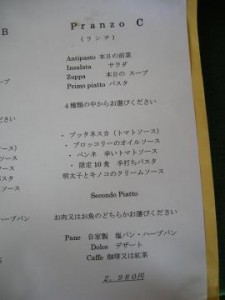 B
Pranzo C
(ランチ)
Antipasto 本日の前菜
Insalata サラダ
Zuppa 本日の スープ
Primo piatto パスタ
4種類の中からお選びください
・ブッタネスカ(トマトソース)
・ブロッコリーのオイルソース
・ペンネ 辛いトマトソース
・限定10食 手打ちパスタ
明太子とキノコのクリームソース
Secondo Piatto
お肉又はお魚のどちらかお選びください
Pane 自家製 塩パン・ハーブパン
Dolce デザート
Caffe 珈琲又は紅茶
2,980円